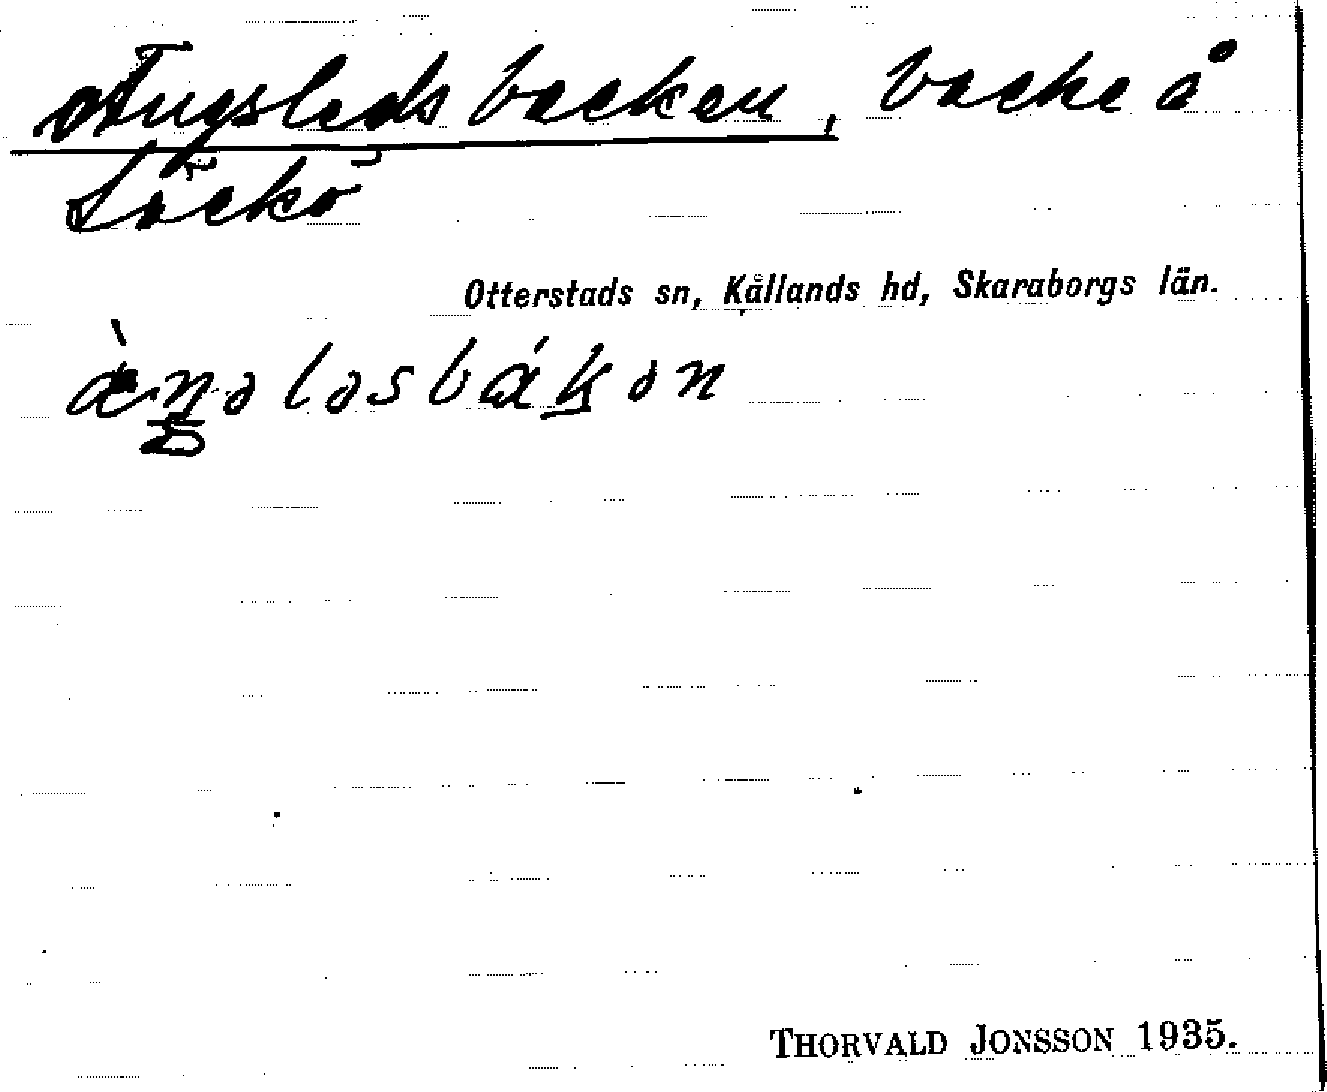 Ängsledsbacken, backe å
Läckö
Otterstads sn, Kållands hd, Skaraborgs län.
THORVALD JONSSON 1935.